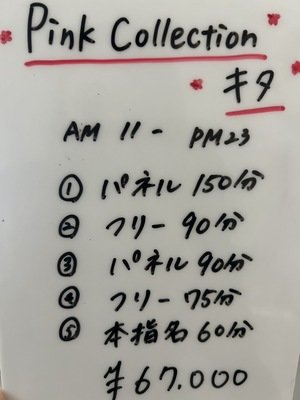 Pink Collection
キタ
AM 11 - PM23
① パネル 150分
② フリー 90分
③ パネル 90分
④ フリー 75分
⑤ 本指名 60分
¥67.000